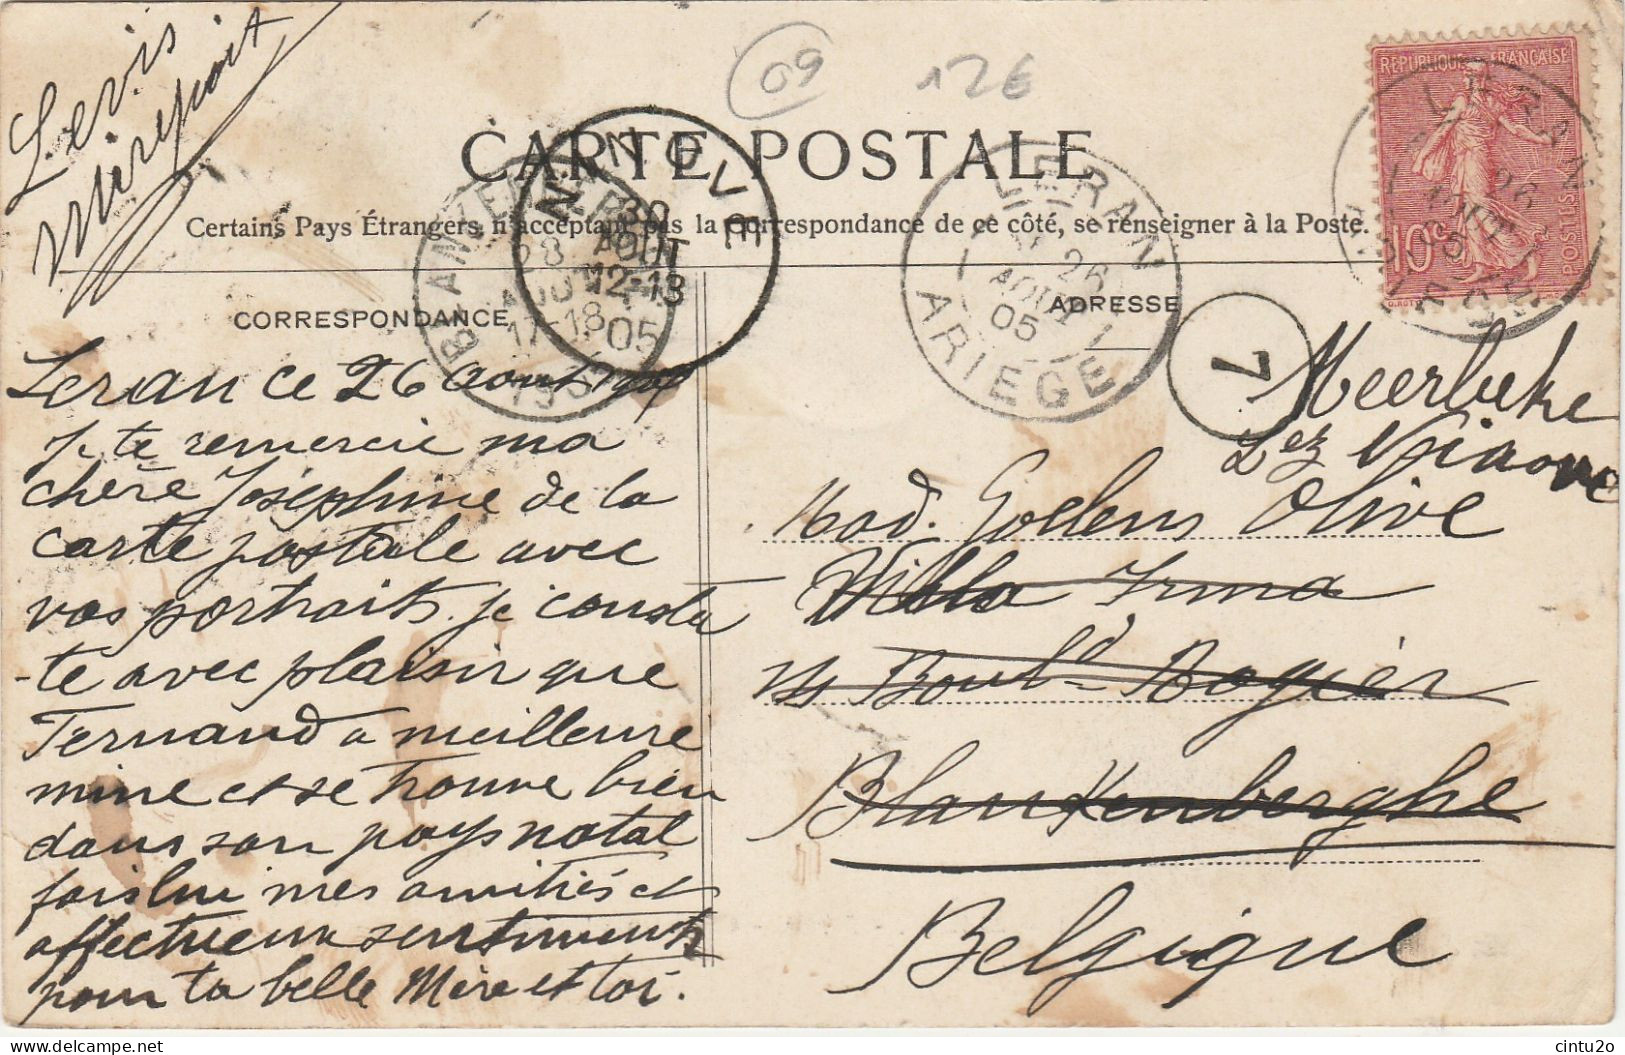 Levis
Mirepoix
09
12€
CARTE POSTALE
Certains Pays Étrangers n'acceptant pas la correspondance de ce côté, se renseigner à la Poste.
REPUBLIQUE FRANÇAISE
10c
POSTES
LERAN
26
AOUT
05
ARIEGE
NINOVE
30
AOUT
12-13
05
BLANKENBERGHE
28
AOUT
17-18
1905
LERAN
26
AOUT
05
ARIEGE
7
CORRESPONDANCE
ADRESSE
Leran ce 26 aout
Je te remercie ma
chère Joséphine de la
carte postale avec
vos portraits. je consta
-te avec plaisir que
Fernand a meilleure
mine et se trouve bien
dans son pays natal
fais lui mes amitiés et
affectueux sentiments
pour ta belle Mère et toi.
Meerbeke
Lez Ninove
Mad. Goelens Olive
Villa Irma
Boul.d Rogier
Blankenberghe
Belgique
cintu2o